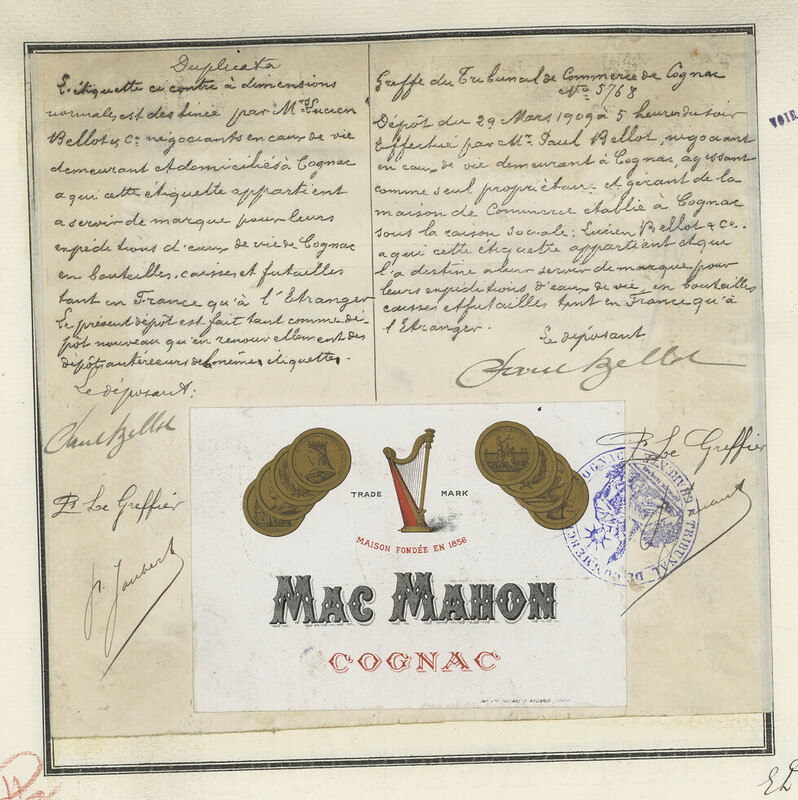 Duplicata
L'étiquette ci contre à dimensions
normales est destinée par Mrs Lucien
Bellot & Cie négociants en eaux de vie
demeurant et domiciliés à Cognac
a qui cette étiquette appartient
a servir de marque pour leurs
expéditions d'eaux de vie de Cognac
en bouteilles, caisses et futailles
tant en France qu'à l'Etranger
Le présent dépôt est fait tant comme dé-
pôt nouveau qu'en renouvellement des
dépôts antérieurs de mêmes étiquettes.
Le déposant:
Paul Bellot
Le Greffier
Greffe du Tribunal de Commerce de Cognac
No 5768
Dépôt du 29 Mars 1909 à 5 heures du soir
Effectué par Mr. Paul Bellot, négociant
en eaux de vie demeurant à Cognac, agissant
comme seul propriétaire et gérant de la
maison de Commerce établie à Cognac
sous la raison sociale: Lucien Bellot & Cie.
a qui cette étiquette appartient et qui
l'a destine a leur servir de marque pour
leurs expéditions d'eaux de vie, en bouteilles
caisses et futailles tant en France qu'à
l'Etranger.
Le déposant
Paul Bellot
Le Greffier
TRADE MARK
MAISON FONDÉE EN 1856
MAC MAHON
COGNAC
TRIBUNAL DE COMMERCE
COGNAC
VOIR